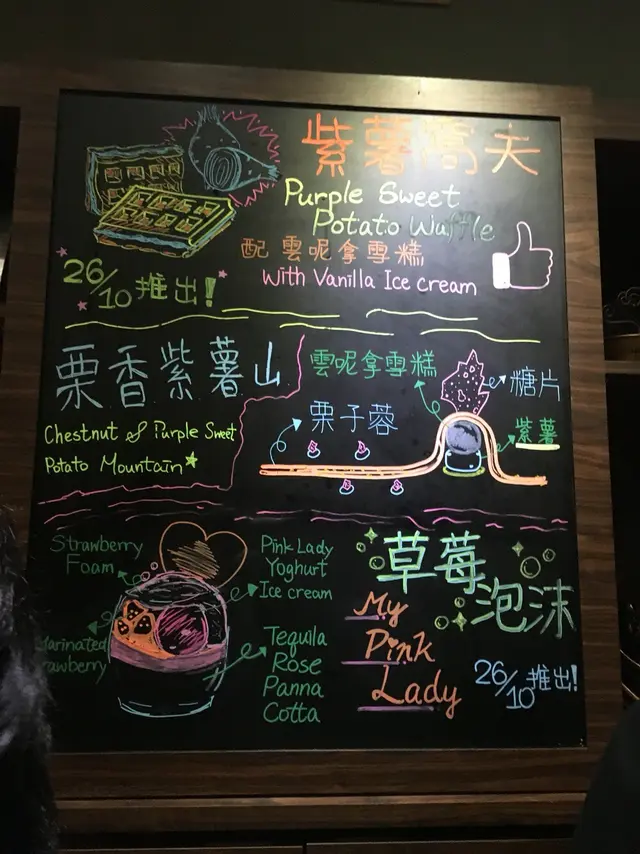 紫薯窩夫
Purple Sweet
Potato Waffle
配雲呢拿雪糕
with Vanilla Ice cream
26/10推出!
栗香紫薯山
Chestnut of Purple Sweet
Potato Mountain
雲呢拿雪糕
糖片
栗子蓉
紫薯
Strawberry
Foam
Pink Lady
Yoghurt
Ice cream
Tequila
Rose
Panna
Cotta
草莓
泡沫
My
Pink
Lady
26/10推出!